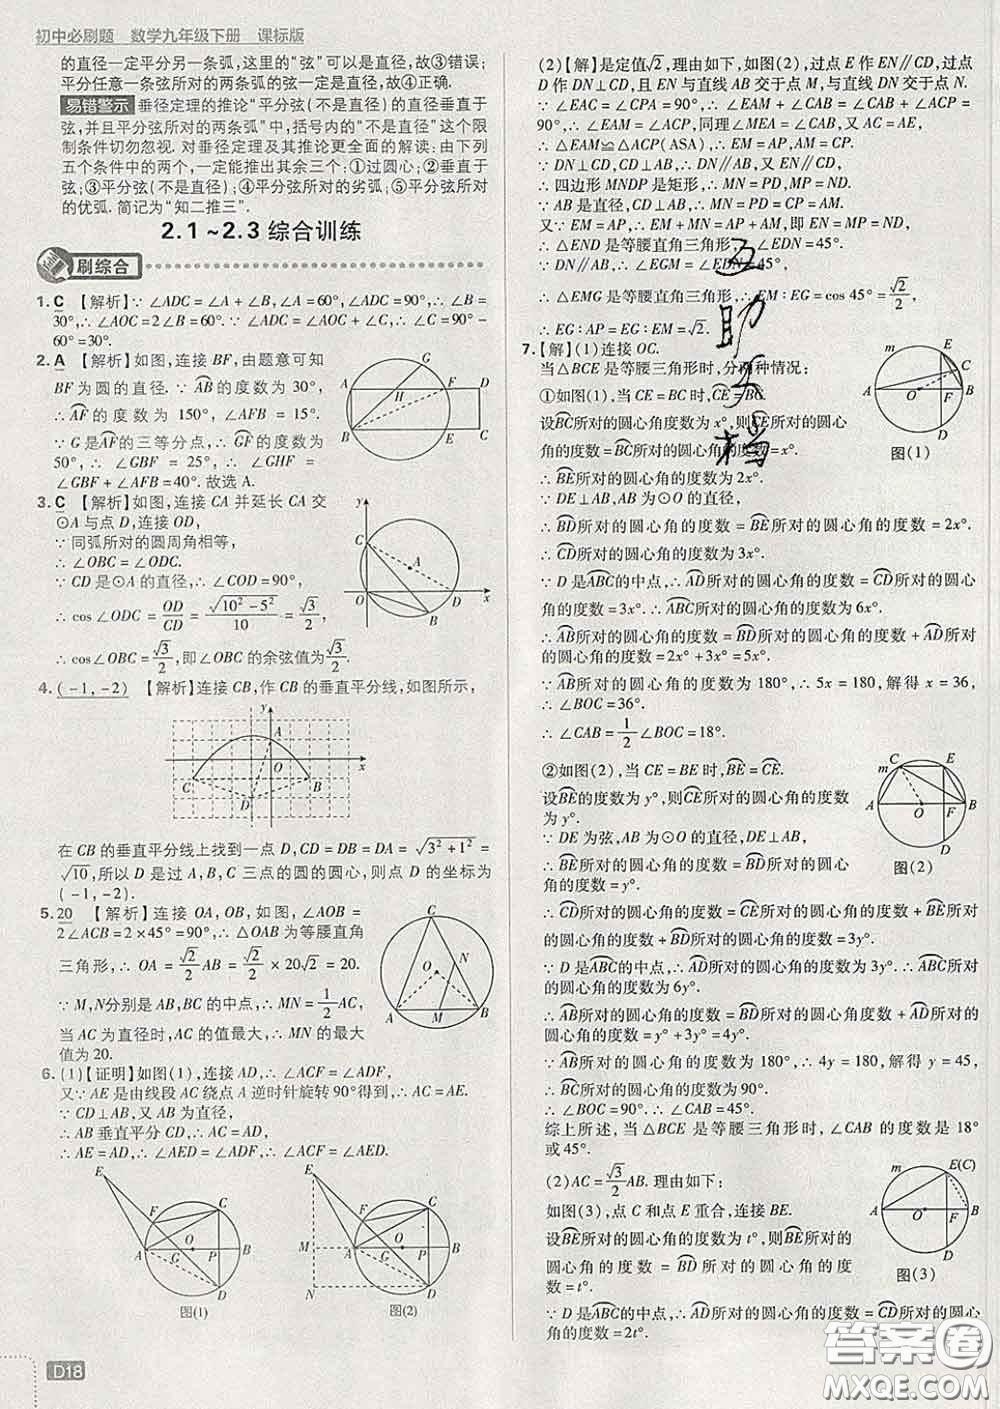 初中必刷题 数学九年级下册 课标版
的直径一定平分另一条弧,这里的“弦”可以是直径,故③错误;
平分任意一条弦所对的两条弧的弦一定是直径,故④正确.
易错警示 垂径定理的推论“平分弦(不是直径)的直径垂直于
弦,并且平分弦所对的两条弧”中,括号内的“不是直径”这个限
制条件切勿忽视.对垂径定理及其推论更全面的解读:由下列
五个条件中的两个,一定能推出其余三个:①过圆心;②垂直于
弦;③平分弦(不是直径);④平分弦所对的劣弧;⑤平分弦所对
的优弧.简记为“知二推三”.
2.1~2.3综合训练
刷综合
1. C 【解析】∵ ∠ADC = ∠A + ∠B,∠A = 60°, ∠ADC = 90°,∴ ∠B =
30°,∴ ∠AOC = 2∠B = 60°. ∵ ∠ADC = ∠AOC + ∠C,∴ ∠C = 90° -
60° = 30°.
2. A 【解析】如图,连接 BF,由题意可知
BF 为圆的直径. ∵ A͡B 的度数为 30°,
∴ A͡F 的度数为 150°, ∠AFB = 15°.
∵ G 是A͡F的三等分点,∴ G͡F的度数为
50°,∴ ∠GBF = 25°,∴ ∠GHF =
∠GBF + ∠AFB = 40°. 故选 A.
A B C D E F G H
3. C 【解析】如图,连接 CA 并延长 CA 交
⊙A 与点 D,连接 OD,
∵ 同弧所对的圆周角相等,
∴ ∠OBC = ∠ODC.
∵ CD 是⊙A 的直径,∴ ∠COD = 90°,
∴ cos∠ODC = OD/CD = √(10² - 5²)/10 = √3/2,
∴ cos∠OBC = √3/2,即∠OBC 的余弦值为√3/2.
y C A O B D x
4. (-1,-2) 【解析】连接 CB,作 CB 的垂直平分线,如图所示,
y A x C D B
在 CB 的垂直平分线上找到一点 D,CD = DB = DA = √(3² + 1²) =
√10,所以 D 是过 A,B,C 三点的圆的圆心,则点 D 的坐标为
(-1,-2).
5. 20 【解析】连接 OA,OB,如图,∠AOB =
2∠ACB = 2×45° = 90°,∴ △OAB 为等腰直角
三角形,∴ OA = √2/2 AB = √2/2 × 20√2 = 20.
∵ M,N分别是 AB,BC 的中点,∴ MN = 1/2 AC,
当 AC 为直径时,AC 的值最大,∴ MN 的最大
值为 20.
C N O A M B
6. (1)【证明】如图(1),连接 AD,∴ ∠ACF = ∠ADF,
又∵ AE 是由线段 AC 绕点 A 逆时针旋转 90°得到,∴ AC = AE.
∵ CD⊥AB,又 AB 为直径,
∴ AB 垂直平分 CD,∴ AC = AD.
∴ AE = AD,∴ ∠AED = ∠ADF,∴ ∠ACF = ∠AED.
E F C A G O P B D
图(1)
E F C M A G O P B N D
图(2)
D18
(2)【解】是定值√2,理由如下,如图(2),过点 E 作 EN∥CD,过点
D 作 DN⊥CD,且 EN 与直线 AB 交于点 M,与直线 DN 交于点 N.
∵ ∠EAC = ∠CPA = 90°,∴ ∠EAM + ∠CAB = ∠CAB + ∠ACP =
90°,∴ ∠EAM = ∠ACP,同理∠MEA = ∠CAB, 又∵ AC = AE,
∴ △EAM≌△ACP(ASA),∴ EM = AP,AM = CP.
∵ DN⊥CD,CD⊥AB,∴ DN∥AB, 又∵ EN∥CD,
∴ 四边形 MNDP 是矩形,∴ MN = PD,MP = DN.
∵ AB 是直径,CD⊥AB,∴ MN = PD = CP = AM.
又∵ EM = AP,∴ EM + MN = AP + AM,即 EN = MP = DN,
∴ △END 是等腰直角三角形,∴ ∠EDN = 45°.
∵ DN∥AB,∴ ∠EGM = ∠EDN = 45°,
∴ △EMG 是等腰直角三角形,∴ EM∶EG = cos 45° = √2/2,
∴ EG∶AP = EG∶EM = √2.
互
助
文
档
7.【解】(1)连接 OC.
当△BCE 是等腰三角形时,分两种情况:
①如图(1),当 CE = BC 时,C͡E = B͡C.
设B͡C所对的圆心角度数为 x°,则C͡E所对的圆心
角的度数 = B͡C所对的圆心角的度数 = x°.
∴ B͡E所对的圆心角的度数为 2x°.
∵ DE⊥AB,AB 为⊙O 的直径,
m C E A O F B D
图(1)
∴ B͡D所对的圆心角的度数 = B͡E所对的圆心角的度数 = 2x°.
∴ C͡D所对的圆心角的度数为 3x°.
∵ D 是A͡BC的中点,∴ A͡D所对的圆心角的度数 = C͡D所对的圆心
角的度数 = 3x°.∴ A͡BC所对的圆心角的度数为 6x°.
∴ A͡B所对的圆心角的度数 = B͡D所对的圆心角的度数 + A͡D所对
的圆心角的度数 = 2x° + 3x° = 5x°.
∵ A͡B所对的圆心角的度数为 180°,∴ 5x = 180,解得 x = 36,
∴ ∠BOC = 36°.
∴ ∠CAB = 1/2 ∠BOC = 18°.
②如图(2),当 CE = BE 时,B͡E = C͡E.
设B͡E的度数为 y°,则C͡E所对的圆心角的度数
为 y°.
∵ DE 为弦,AB 为⊙O 的直径,DE⊥AB,
∴ B͡E所对的圆心角的度数 = B͡D所对的圆心
角的度数 = y°.
m C E A O F B D
图(2)
∴ C͡D所对的圆心角的度数 = C͡E所对的圆心角的度数 + B͡E所对
的圆心角的度数 + B͡D所对的圆心角的度数 = 3y°.
∵ D 是A͡BC的中点,∴ A͡D所对的圆心角的度数为 3y°.∴ A͡BC所对
的圆心角的度数为 6y°.
∴ A͡B所对的圆心角的度数 = B͡D所对的圆心角的度数 + A͡D所对的
圆心角的度数 = y° + 3y° = 4y°.
∵ A͡B所对的圆心角的度数为 180°,∴ 4y = 180,解得 y = 45,
∴ B͡C所对的圆心角的度数为 90°.
∴ ∠BOC = 90°.∴ ∠CAB = 45°.
综上所述,当△BCE 是等腰三角形时,∠CAB 的度数是 18°
或 45°.
(2)AC = √3/2 AB. 理由如下:
如图(3),点 C 和点 E 重合,连接 BE.
设B͡E所对的圆心角的度数为 t°,则B͡E所对的
圆心角的度数 = B͡D所对的圆心角的度数 = t°.
∴ D͡E所对的圆心角的度数为 2t°.
m E(C) A O F B D
图(3)
∵ D 是A͡BC的中点,∴ A͡D所对的圆心角的度数 = C͡D所对的圆心角的
度数 = 2t°.
答案圈
MXQE.COM